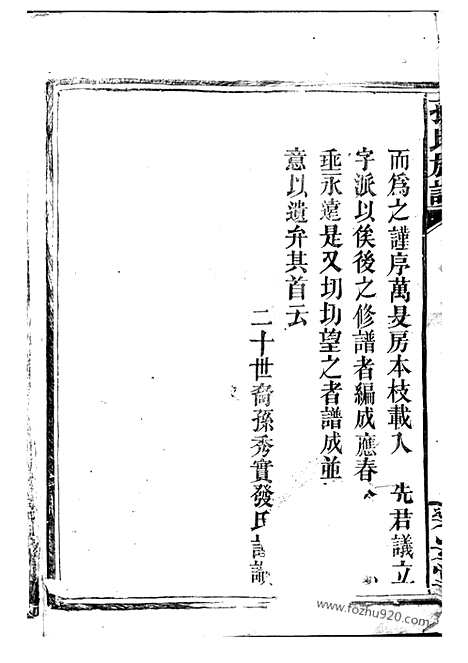 氏族譜
而爲之謹序萬旻房本枝載入 先君議立
字派以俟後之修譜者編成應春
垂永遠是又切切望之者譜成並
意以遺弁其首云
二十世裔孫秀實發氏謹識
www.fozhu920.com